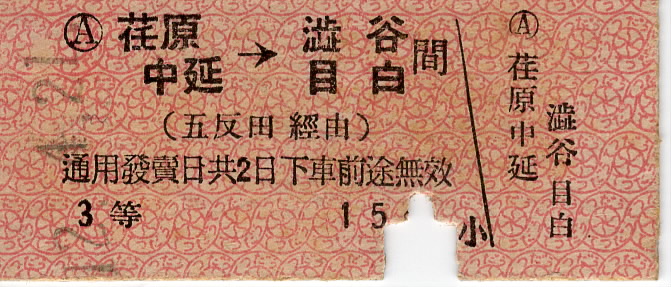 Ⓐ 荏原中延 → 澁谷目白 間
(五反田 經由)
通用發賣日共2日下車前途無效
3等 15
小
Ⓐ 荏原中延
澁谷目白